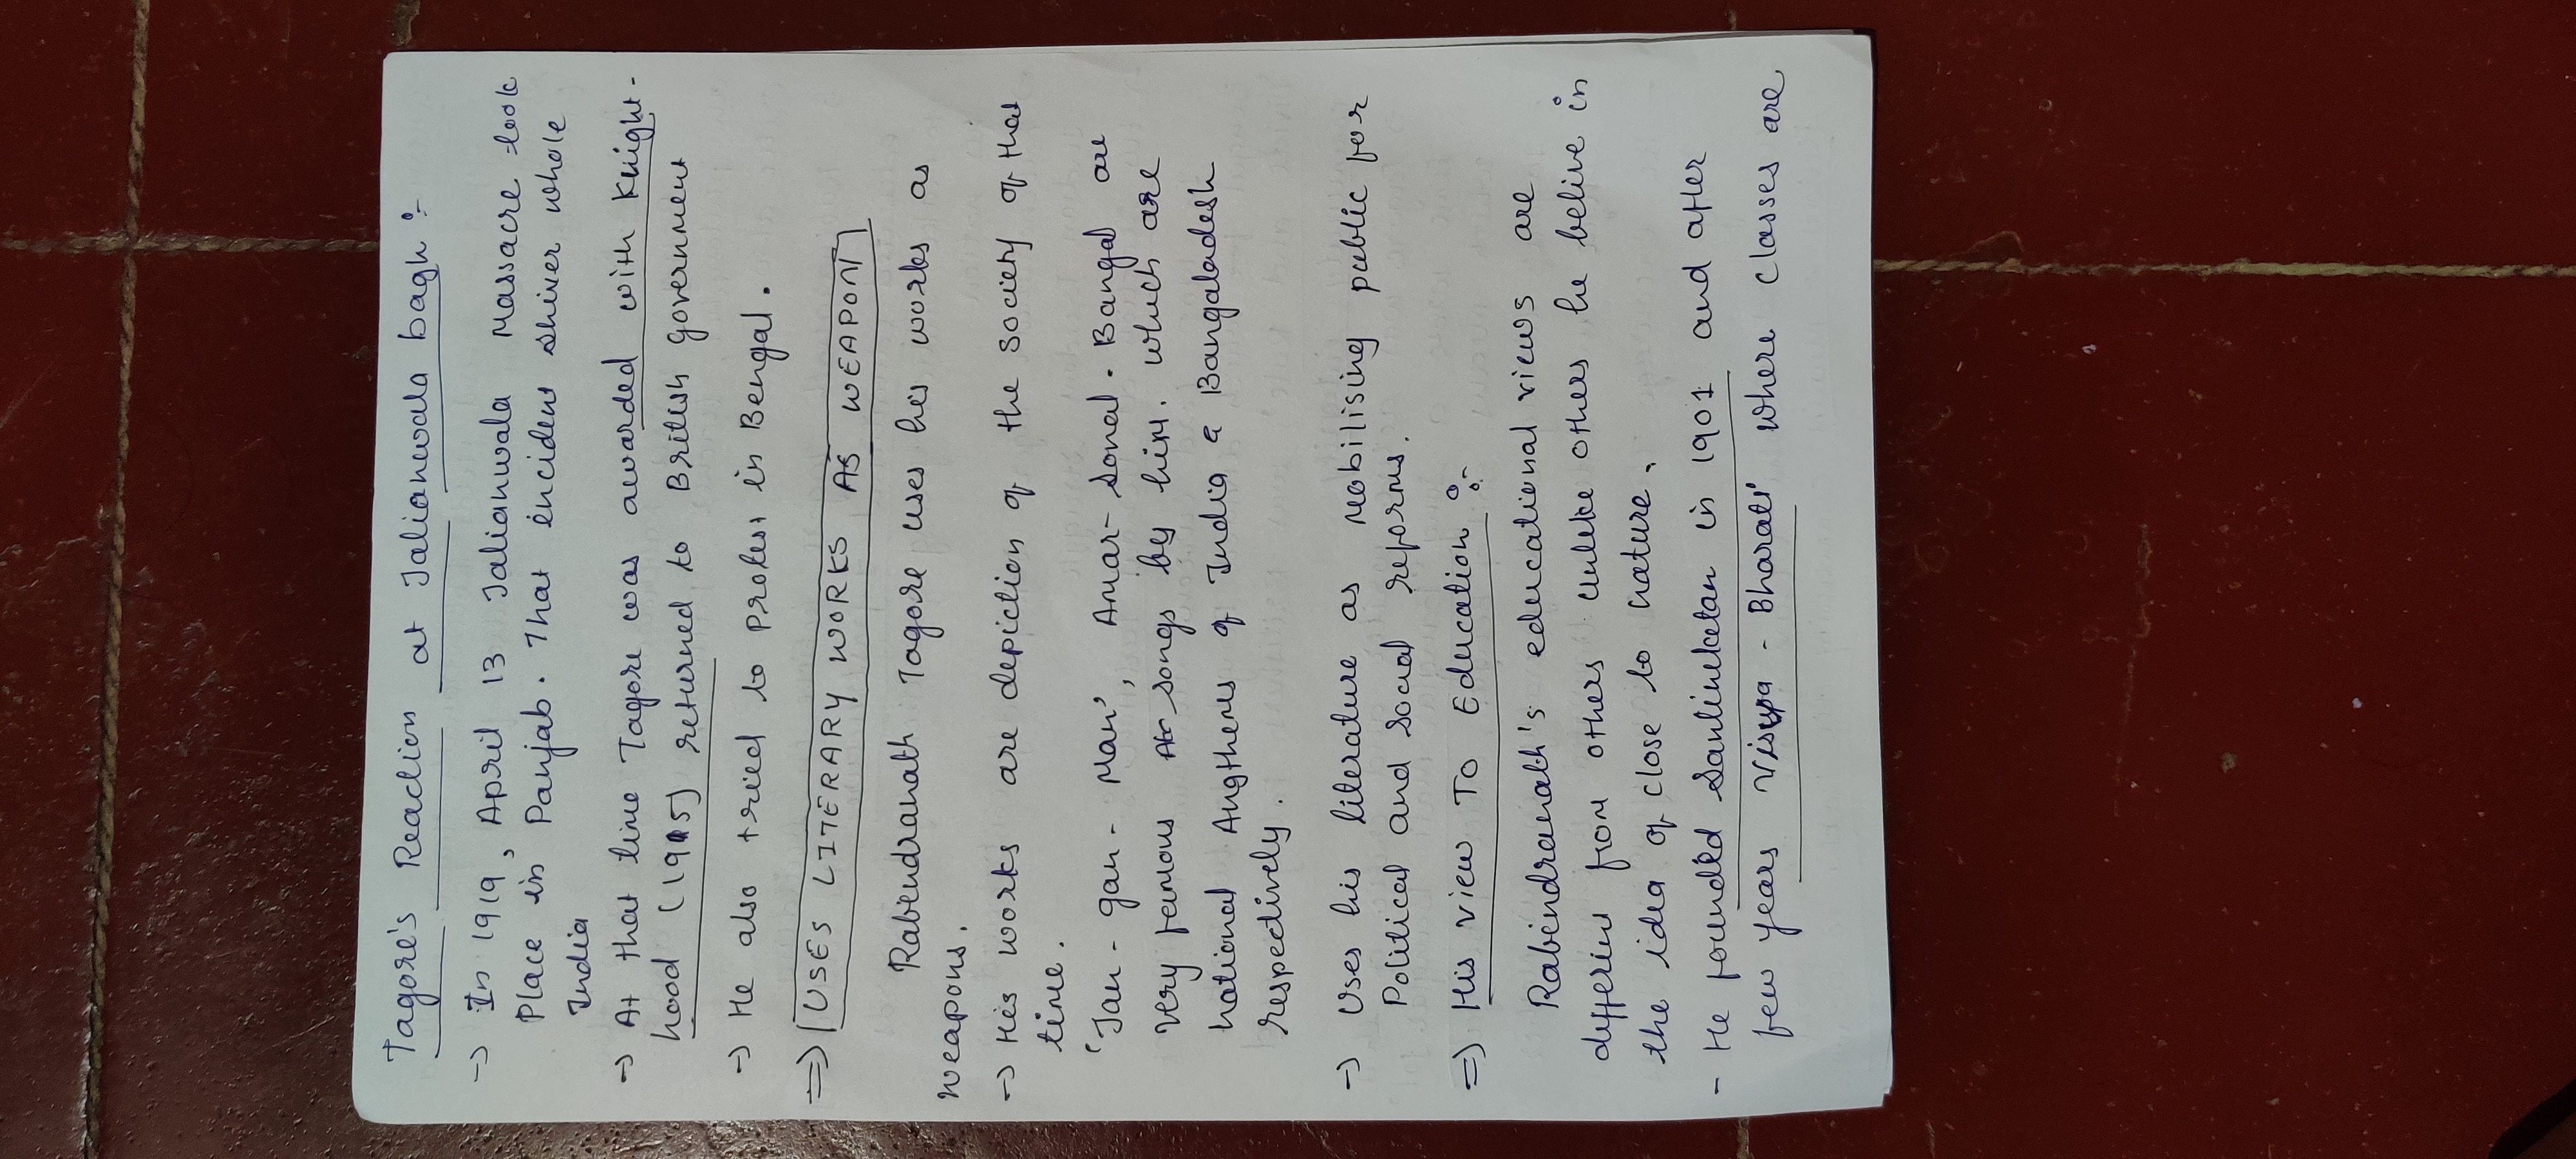 Tagore's Reaction at Jalianwala bagh :-
→ In 1919, April 13 Jalianwala Massacre took
Place in Panjab. That incident shiver whole
India
→ At that time Tagore was awarded with Knight-
hood (1915) returned to British government
→ He also tried to protest in Bengal.
⇒ USES LITERARY WORKS AS WEAPON
Rabindranath Tagore uses his works as
weapons.
→ His works are depiction of the society of that
time.
'Jan-gan-Man', Amar-Sonal. Bangal are
very famous songs by him. which are
national Angthems of India & Bangaladesh
respectively.
→ Uses his literature as mobilising public for
Political and social reforms.
⇒ His view To Education :-
Rabindranath's educational views are
differint from others unlike others he belive in
the idea of close to nature.
- He founded Santiniketan in 1901 and after
few years Visva-Bharati where classes are